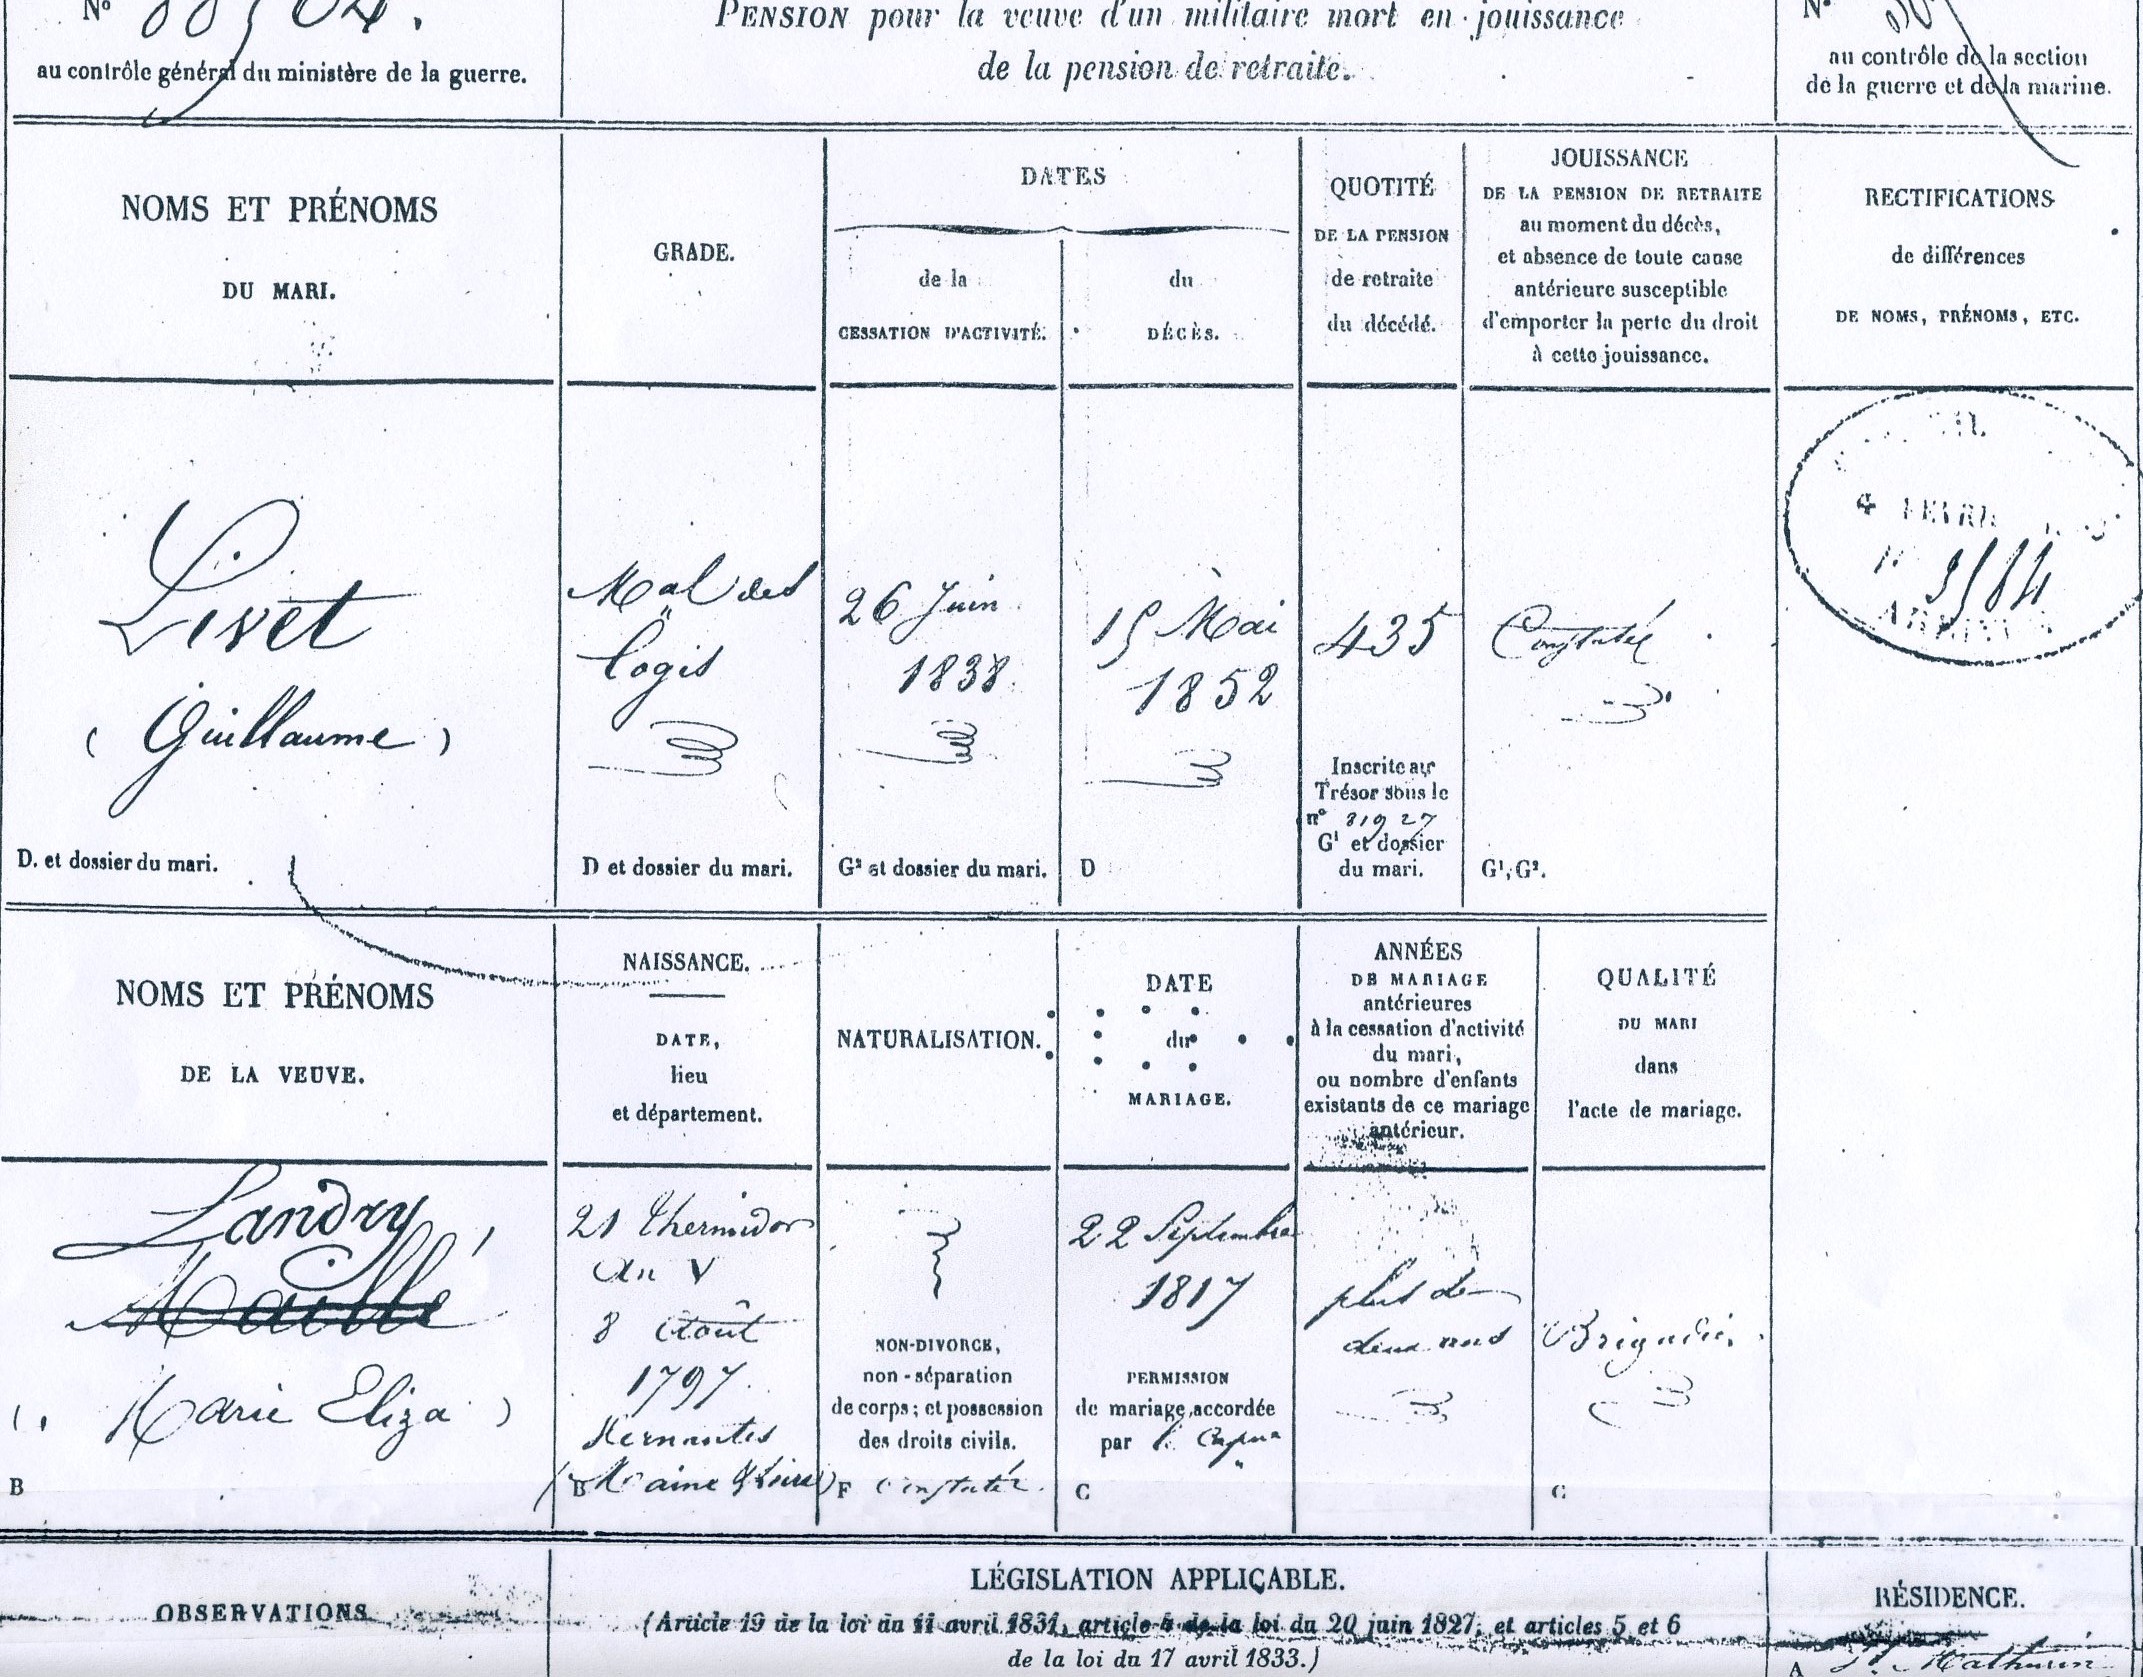 No
au contrôle général du ministère de la guerre.
PENSION pour la veuve d'un militaire mort en jouissance
de la pension de retraite.
N.
au contrôle de la section
de la guerre et de la marine.
NOMS ET PRÉNOMS
DU MARI.
GRADE.
DATES
de la
CESSATION D'ACTIVITÉ.
du
DÉCÈS.
QUOTITÉ
DE LA PENSION
de retraite
du décédé.
JOUISSANCE
DE LA PENSION DE RETRAITE
au moment du décès,
et absence de toute cause
antérieure susceptible
d'emporter la perte du droit
à cette jouissance.
RECTIFICATIONS
de différences
DE NOMS, PRÉNOMS, ETC.
Livet
(Guillaume)
D. et dossier du mari.
Mal des
logis
D et dossier du mari.
26 Juin
1838
G² et dossier du mari.
15 Mai
1852
D
435
Inscrite au
Trésor sous le
n° 81927
G¹ et dossier
du mari.
Constatée
G¹, G².
4 FEVRI
NOMS ET PRÉNOMS
DE LA VEUVE.
NAISSANCE.
DATE,
lieu
et département.
NATURALISATION.
DATE
du
MARIAGE.
ANNÉES
DE MARIAGE
antérieures
à la cessation d'activité
du mari,
ou nombre d'enfants
existants de ce mariage
antérieur.
QUALITÉ
DU MARI
dans
l'acte de mariage.
Landry
Maillé
(Marie Eliza)
B
21 Thermidor
an V
8 Août
1797
Vernantes
B (Maine & Loire)
NON-DIVORCE,
non-séparation
de corps; et possession
des droits civils.
F Constatée
22 Septembre
1817
PERMISSION
de mariage accordée
par
C
plus de
deux ans
Brigadier
C
OBSERVATIONS
LÉGISLATION APPLICABLE.
(Article 19 de la loi du 11 avril 1831, article 4 de la loi du 20 juin 1827, et articles 5 et 6
de la loi du 17 avril 1833.)
RÉSIDENCE.
A St Mathurin